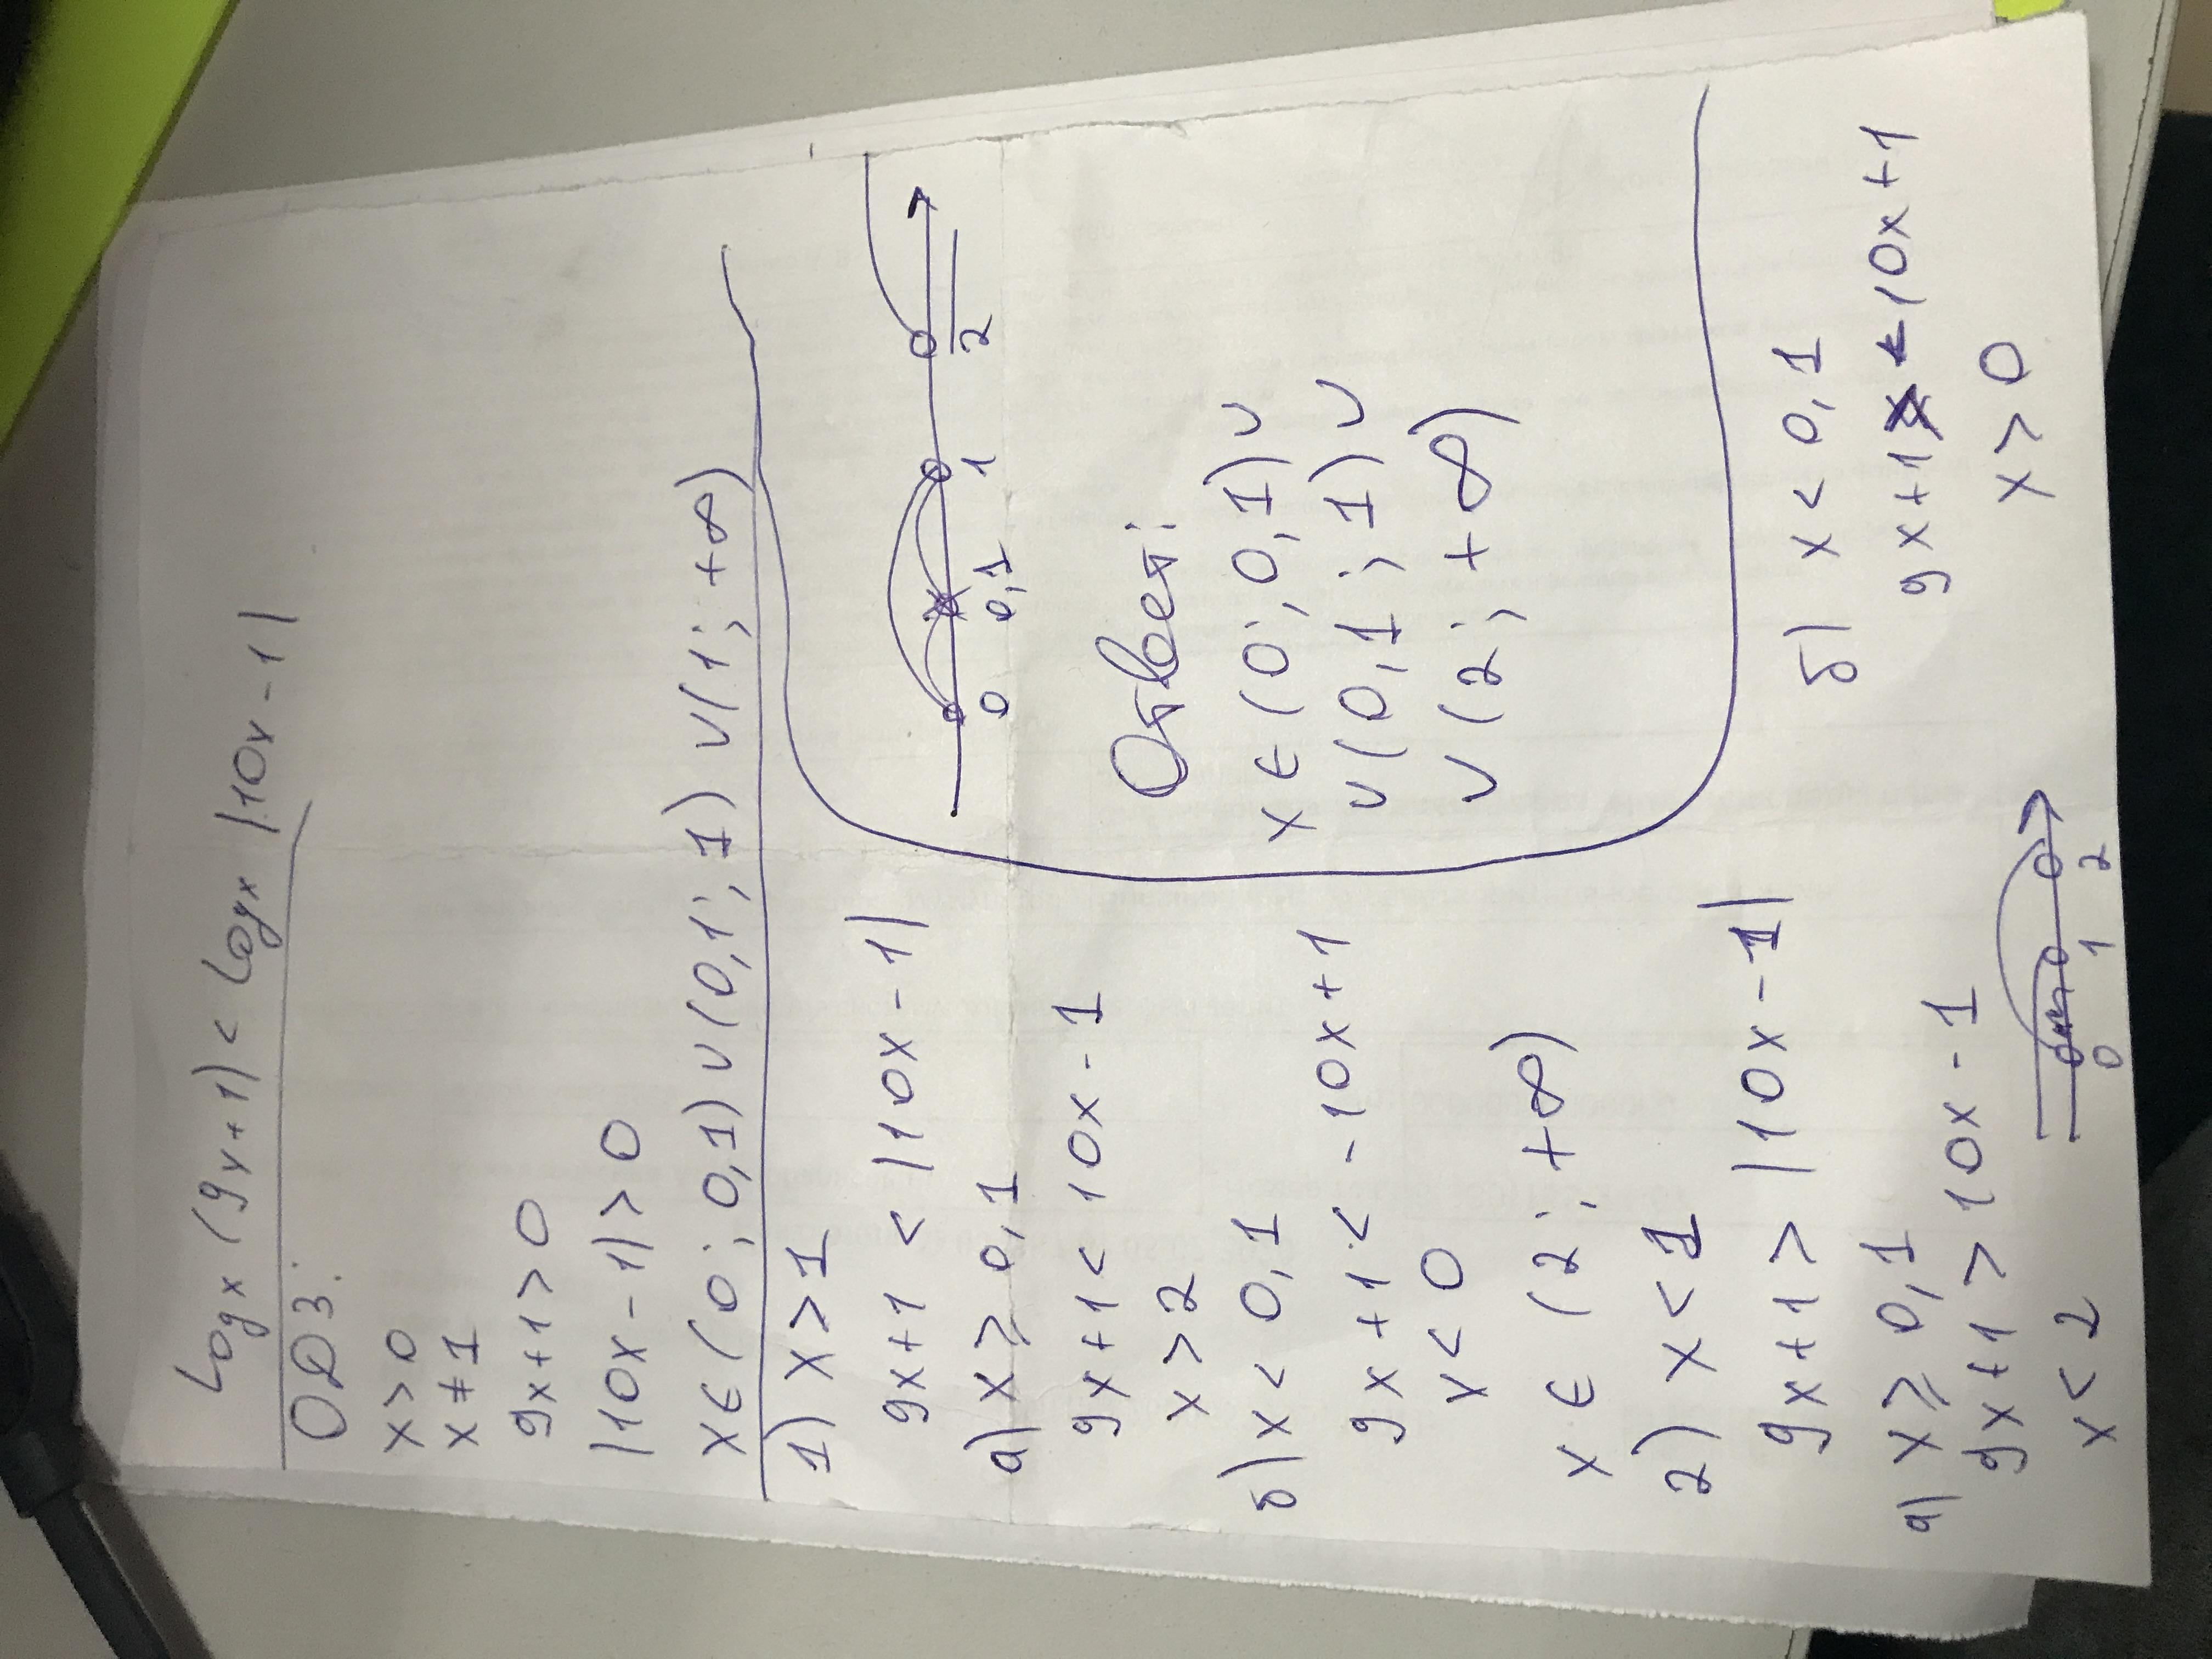 Log x (9x+1) < Log x |10x-1|
ОДЗ:
x>0
x≠1
9x+1>0
|10x-1|>0
x∈(0;0,1)∪(0,1;1)∪(1;+∞)
1) x>1
9x+1 < |10x-1|
а) x⩾0,1
9x+1 < 10x-1
x>2
б) x<0,1
9x+1 < -10x+1
x<0
x∈(2;+∞)
2) x<1
9x+1 > |10x-1|
а) x⩾0,1
9x+1 > 10x-1
x<2
0 1 2
б) x<0,1
9x+1 -10x+1
x>0
0 0,1 1 2
Ответ:
x∈(0;0,1)∪
∪(0,1;1)∪
∪(2;+∞)